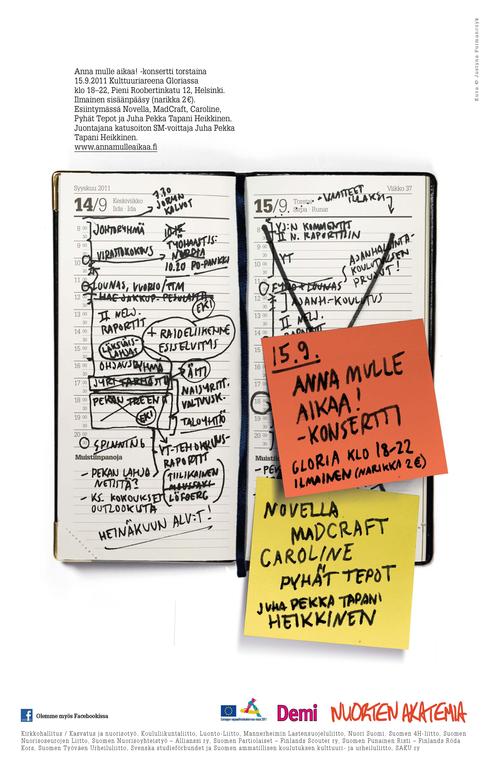 Kuva © Justyna Furmanczyk
Anna mulle aikaa! -konsertti torstaina
15.9.2011 Kulttuuriareena Gloriassa
klo 18–22, Pieni Roobertinkatu 12, Helsinki.
Ilmainen sisäänpääsy (narikka 2€).
Esiintymässä Novella, MadCraft, Caroline,
Pyhät Tepot ja Juha Pekka Tapani Heikkinen.
Juontajana katusoiton SM-voittaja Juha Pekka
Tapani Heikkinen.
www.annamulleaikaa.fi
Syyskuu 2011
14/9 Keskiviikko
Iida · Ida
7.10
JORMAN
KALVOT
JOHTORYHMÄ
VIRASTOKOKOUS
TYÖHAASTIS:
10.20 PO-PANKKI
LOUNAS, VUORIO/TTM
HAE JAKKUP. PESULASTA
EKI
II NELJ.
RAPORTIT
+ RAIDELIIKENNE
ESISELVITYS
LÄKSIÄIS-
LAHJAS
OHJAUSRYHMÄ
ÄITI
JYRI TARMOSTO
PEKAN TREENIT
EKI
NAISYRITT.
VALTUUSK.
TALOYHTIÖ
SPINNING
Muistiinpanoja
YT-TEHOKKUUS-
RAPORTIT
- PEKAN LAHJA
NETISTÄ?
- KS. KOKOUKSET
OUTLOOKISTA
TIILIKAINEN
MOUSSAKI
LÖFBERG
HEINÄKUUN ALV:T!
15/9 Torstai
Sirpa · Runar
Viikko 37
- VAATTEET
ILLAKSI
YJ:N KOMMENTIT
II N. RAPORTTIIN
YT
AJANHALLINTA-
KOULUTUKSEN
PRUJUT!
+ LOUNAS
AJANH-KOULUTUS
II NELJ.
15.9.
ANNA MULLE
AIKAA!
-KONSERTTI
GLORIA KLO 18-22
ILMAINEN (NARIKKA 2€)
NOVELLA
MADCRAFT
CAROLINE
PYHÄT TEPOT
JUHA PEKKA TAPANI
HEIKKINEN
Olemme myös Facebookissa
Demi
NUORTEN AKATEMIA
Kirkkohallitus / Kasvatus ja nuorisotyö, Koululiikuntaliitto, Luonto-Liitto, Mannerheimin Lastensuojeluliitto, Nuori Suomi, Suomen 4H-liitto, Suomen
Nuorisoseurojen Liitto, Suomen Nuorisoyhteistyö – Allianssi ry, Suomen Partiolaiset – Finlands Scouter ry, Suomen Punainen Risti – Finlands Röda
Kors, Suomen Työväen Urheiluliitto, Svenska studieförbundet ja Suomen ammatillisen koulutuksen kulttuuri- ja urheiluliitto, SAKU ry